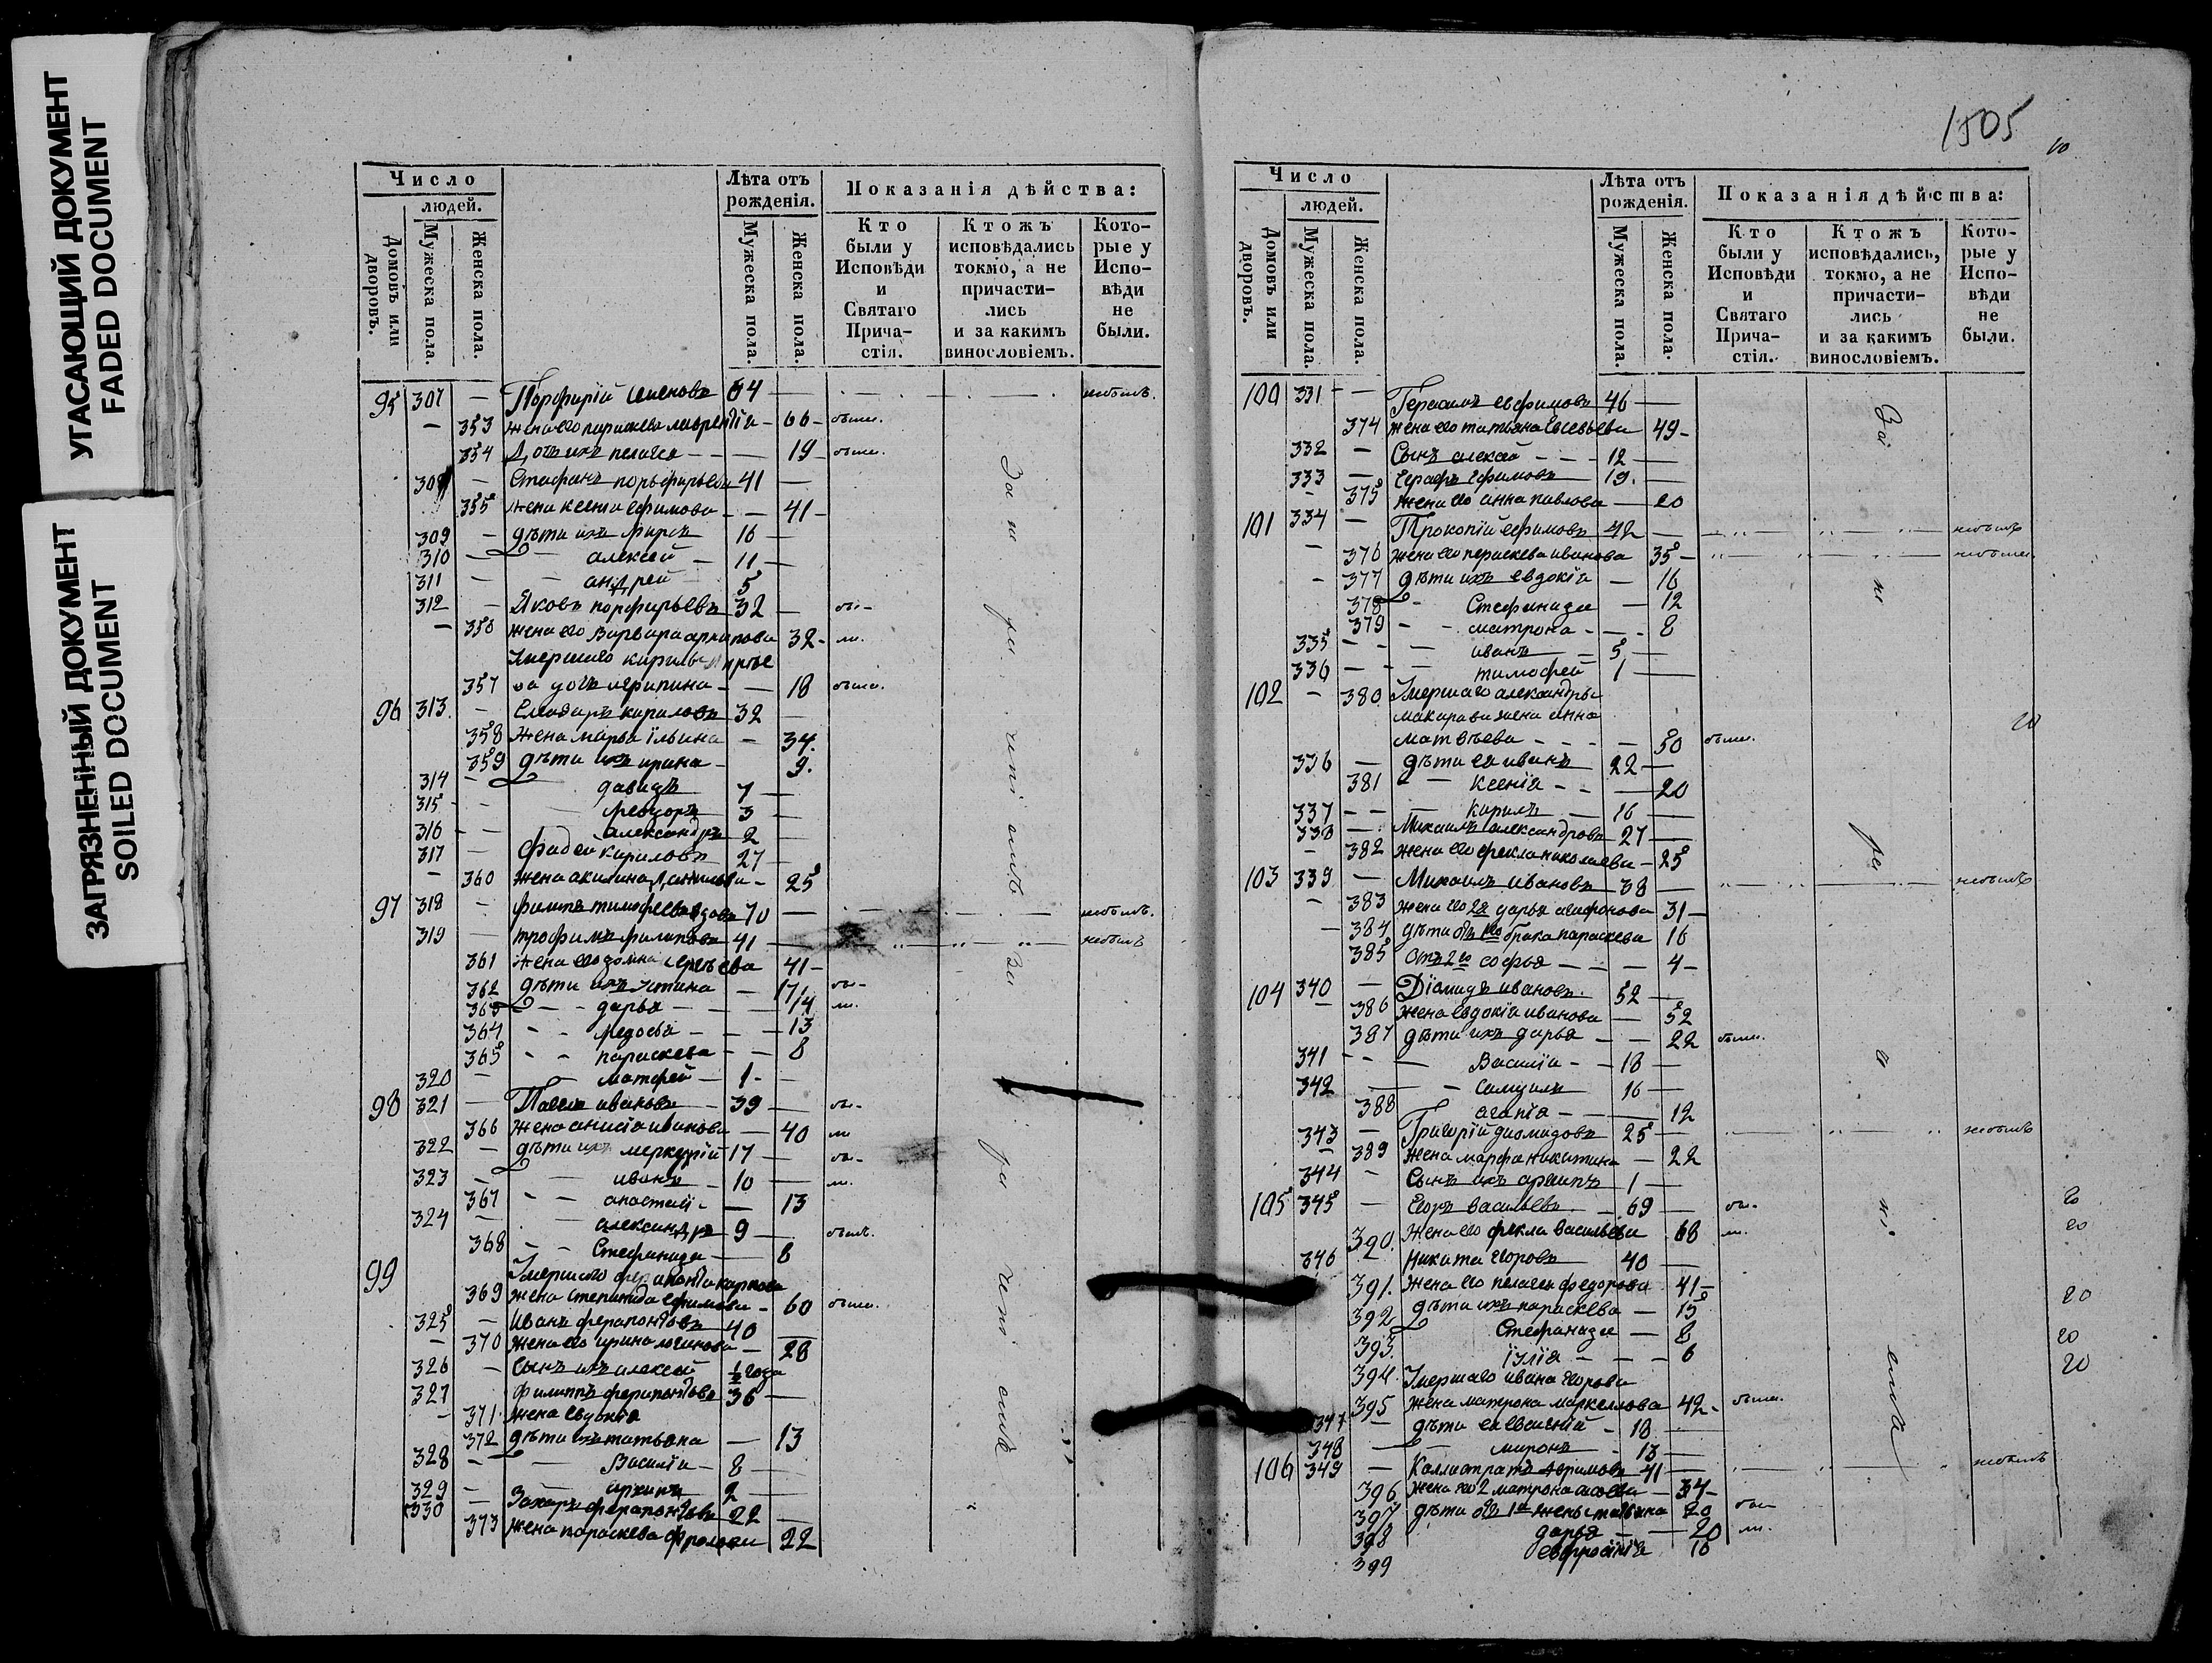 УГАСАЮЩИЙ ДОКУМЕНТ
FADED DOCUMENT
ЗАГРЯЗНЕННЫЙ ДОКУМЕНТ
SOILED DOCUMENT
Число
людей.
Домовъ или дворовъ.
Мужеска пола.
Женска пола.
Лѣта отъ рожденія.
Мужеска пола.
Женска пола.
Показанія дѣйства:
Кто были у Исповѣди и Святаго Прича- стія.
Ктожъ исповѣдались токмо, а не причасти- лись и за какимъ винословіемъ.
Кото- рые у Испо- вѣди не были.
95 307 — Порфирій Семеновъ 64 — небылъ.
— 353 жена его парасковья — 66 — были.
354 Дочь ихъ пелагея — — 19 — были.
308 — Стефанъ порфирьевъ 41 —
355 жена ксенія ефимова — — 41 —
309 — дѣти ихъ фирсъ 16 —
310 — алексей — 11 —
311 — — андрей 5
312 — Яковъ порфирьевъ 32 — бы-
— 356 жена его Варвара архипова 32 - ли.
Умершаго кирилы
357 дочь агрипина — — 18 были.
96 313. — кириловъ 32 —
358 Жена марья ільина — 34.
359 дѣти ихъ ирина — 9.
314 — давидъ 7 —
315 — — феодоръ 3 —
316 — — александръ 2 —
317 — фадей кириловъ 27 —
— 360 жена акилина — 25
97 318 — филипъ тимофеевъ вдовъ 70 — небылъ.
319 — трофимъ филиповъ 41 — небылъ
361 жена его домна сергѣева 41 —
362 дѣти ихъ устина — 17 бы-
363 — — дарья — — 14 ли.
364 — — федосья — — 13
365 — — параскева — — 8
320 — — матфей — 1 - —
98 321 — Павелъ ивановъ — 39 — бы-
366 жена анисія иванова — 40 ли
322 — дѣти ихъ меркурій 17 — бы-
323 — — иванъ — 10 — ли.
367 — — — 13
324 — — александръ 9 — былъ.
368 — — Стефанида — 8
99 Умершаго ферапонта карпова
369 жена степанида ефимова — 60 были.
325 — Иванъ ферапонтовъ 40 —
— 370 жена его ирина логинова — 28
326 — Сынъ ихъ алексей ½ года
327 филиппъ ферапонтовъ 36 —
— 371 жена евдокія
372 дѣти ихъ татьяна — 13
328 — — Василій — 8 —
329 — — архипъ 2 —
330 — Захаръ ферапонтовъ 22 —
373 жена параскева фролова 22
За не ра чені емъ за
ра чені емъ
1505
10
Число
людей.
Домовъ или дворовъ.
Мужеска пола.
Женска пола.
Лѣта отъ рожденія.
Мужеска пола.
Женска пола.
Показанія дѣйства:
Кто были у Исповѣди и Святаго Прича- стія.
Ктожъ исповѣдались, токмо, а не причасти- лись и за какимъ винословіемъ.
Кото- рые у Испо- вѣди не были.
100 331 — — Герасимъ евфимовъ 46 —
374 жена его татьяна Евсевьева 49 —
332 — Сынъ алексей — — — 12 —
333 — Ефимовъ 19. —
— 375 Жена его анна павлова — 20
101 334 — Прокопій ефимовъ 42 — небылъ
— 376 жена его параскева иванова 35 — небыли.
— 377 дѣти ихъ евдокія — 16
378 — Стефанида — 12
379 — — матрона — — 8
335 — — — иванъ — 5 —
336 — — — тимофей 1 —
102 — 380 Умершаго александра
макарова жена анна
матвѣева — — — — 50 были.
20
336 — дѣти ея иванъ 22 —
381 — — Ксенія — — — 20
337 — — — Кирилъ — 16 —
338 — Михаилъ александровъ 27 —
— 382 жена его фекла николаева — 25
103 339 — Михаилъ Ивановъ 38 — небылъ
— 383 жена его 2я дарья агафонова 31 —
— 384 дѣти отъ 1го брака параскева 16
385 Отъ 2го софья — — — 4 —
104 340 — Діамидъ ивановъ. 52 —
— 386 жена Евдокія иванова — 52
387 дѣти ихъ дарья — — 22 были.
341 — — — Василій — — 18 —
342 — — Самуилъ 16 —
388 агапія — — 12
343 — Григорій диомидовъ 25 — небылъ
— 389 Жена марфа никитина — 22
344 — Сынъ ихъ архипъ — 1 —
105 345 — Егоръ васильевъ — 69 — бы- 20
390. Жена его фекла васильева 68 ли. 20
346 — Никита Егоровъ 40 —
391. жена его пелагея федорова 41 — 20
392 дѣти ихъ параскева — 15
393. Стефанида — 8 20
394. іулія — — — 6 20
Умершаго ивана Егорова
395 жена матрона маркеллова 42 — были.
347 — дѣти ея евгеній — 18 —
348 — — миронъ — 13 —
106 349 — Каллистратъ ефимовъ 41 — небылъ
396 жена его 2 матрона — 34 —
397 дѣти отъ 1й жены татьяна 20 бы-
398 дарья — — 20 ли.
399 евфросинія 16
За не ра че ні емъ